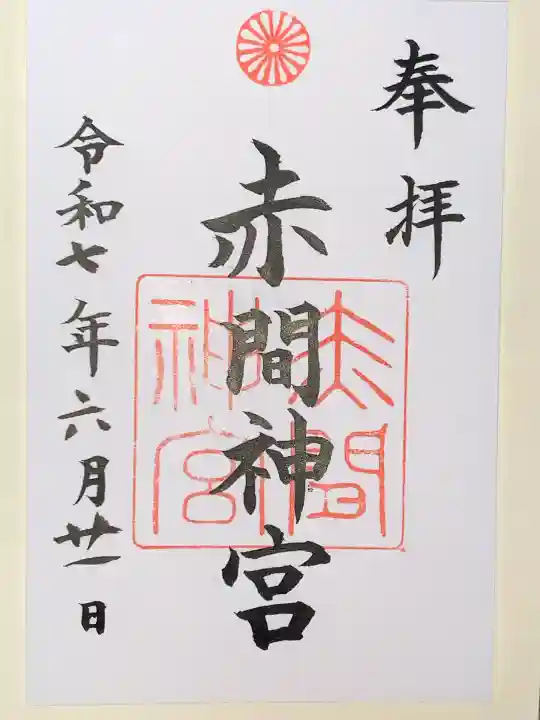 奉拝
赤間神宮
赤間
神宮
令和七年六月廿一日